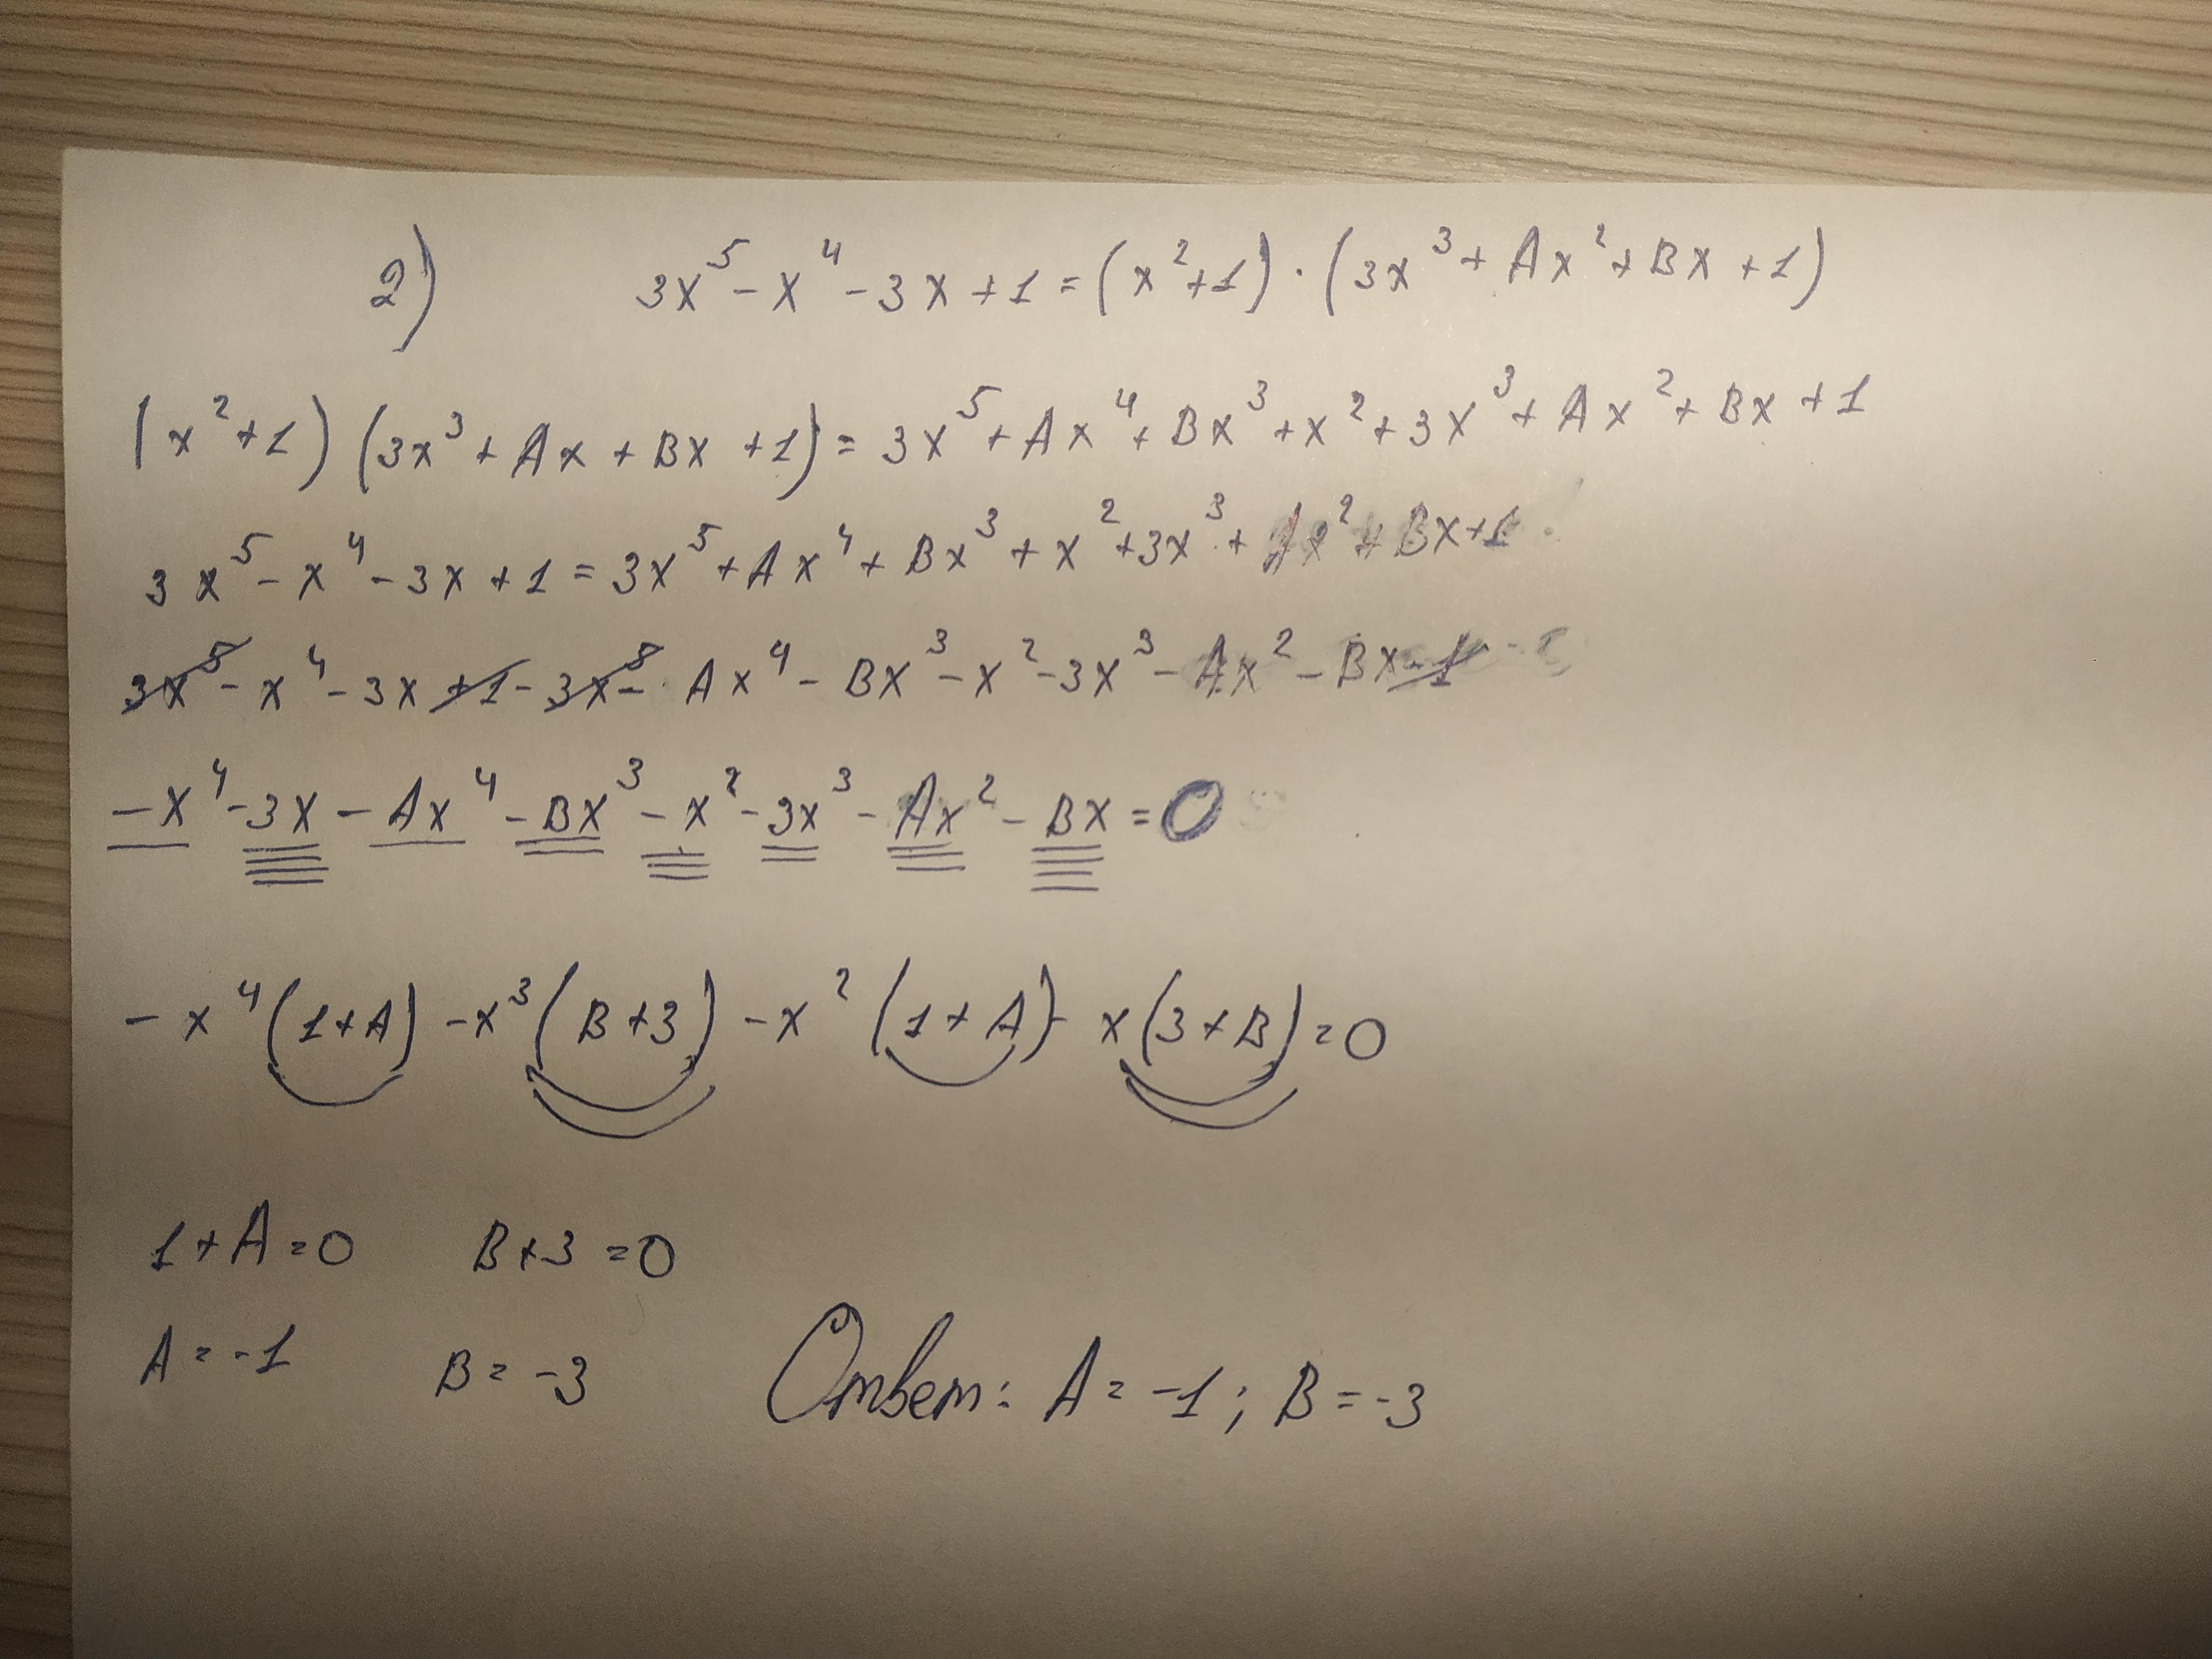 2) 3x⁵ - x⁴ - 3x + 1 = (x² + 1) · (3x³ + Ax² + Bx + 1)
(x² + 1) (3x³ + Ax + Bx + 1) = 3x⁵ + Ax⁴ + Bx³ + x² + 3x³ + Ax² + Bx + 1
3x⁵ - x⁴ - 3x + 1 = 3x⁵ + Ax⁴ + Bx³ + x² + 3x³ + Ax² + Bx + 1
3x⁵ - x⁴ - 3x + 1 - 3x⁵ - Ax⁴ - Bx³ - x² - 3x³ - Ax² - Bx - 1
- x⁴ - 3x - Ax⁴ - Bx³ - x² - 3x³ - Ax² - Bx = 0
- x⁴ (1 + A) - x³ (B + 3) - x² (1 + A) - x (3 + B) = 0
1 + A = 0 B + 3 = 0
A = -1 B = -3 Ответ: A = -1; B = -3